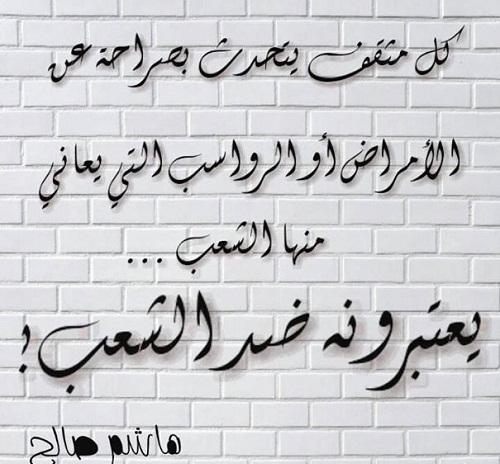 كل مثقف يتحدث بصراحة عن
الأمراض أو الرواسب التي يعاني
منها الشعب ...
يعتبرونه ضد الشعب!
هاشم صالح